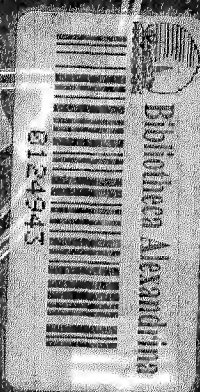 Bibliotheca Alexandrina
0124943